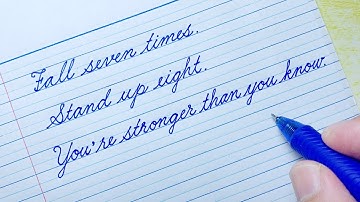 Fall seven times.
Stand up eight.
You're stronger than you know.